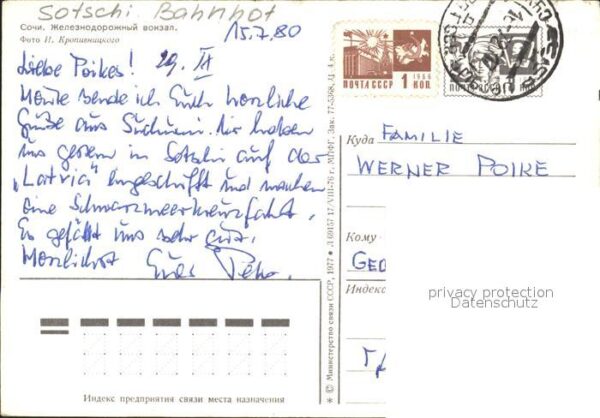 Sotschi. Bahnhof
Сочи. Железнодорожный вокзал.
Фото И. Кропивницкого
15.7.80
Liebe Poikes!
Heute sende ich Euch herzliche
Grüße aus Suchumi. Wir haben
uns gestern in Sotschi auf der
„Latvia“ eingeschifft und machen
eine Schwarzmeerkreuzfahrt.
Es gefällt uns sehr gut.
Herzlichst Euer Peter.
Индекс предприятия связи места назначения
* © Министерство связи СССР, 1977 * Л 69157 17/VIII-76 г. МПФГ. Зак. 77-5368, Ц. 4 к.
1966
ПОЧТА СССР 1 КОП.
Куда FAMILIE
WERNER POIKE
Кому
GEO
Индекс
privacy protection
Datenschutz